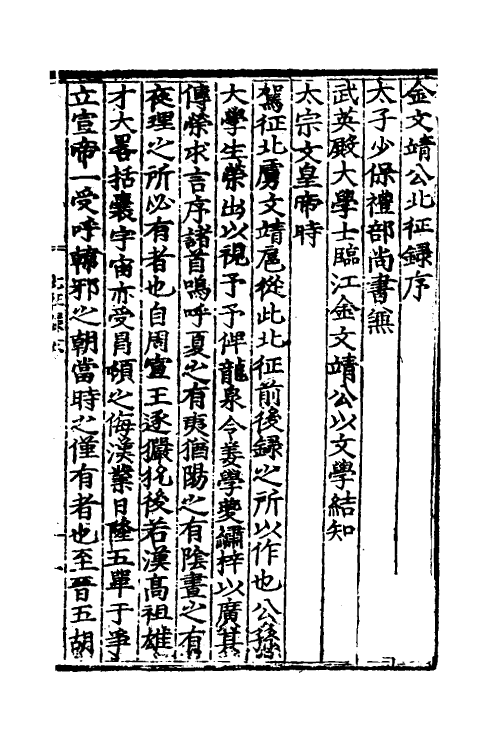 金文靖公北征録序
太子少保禮部尚書兼
武英殿大學士臨江金文靖公以文學結知
太宗文皇帝時
駕征北虜文靖扈從此北征前後録之所以作也公孫
大學生榮出以視予予俾龍泉令姜學夔繡梓以廣其
傳榮求言序諸首嗚呼夏之有夷猶陽之有陰晝之有
夜理之所必有者也自周宣王逐獫狁後若漢高祖雄
才大畧括囊宇宙亦受冒頓之侮漢業日隆五單于爭
立宣帝一受呼韓邪之朝當時之僅有者也至晉五胡